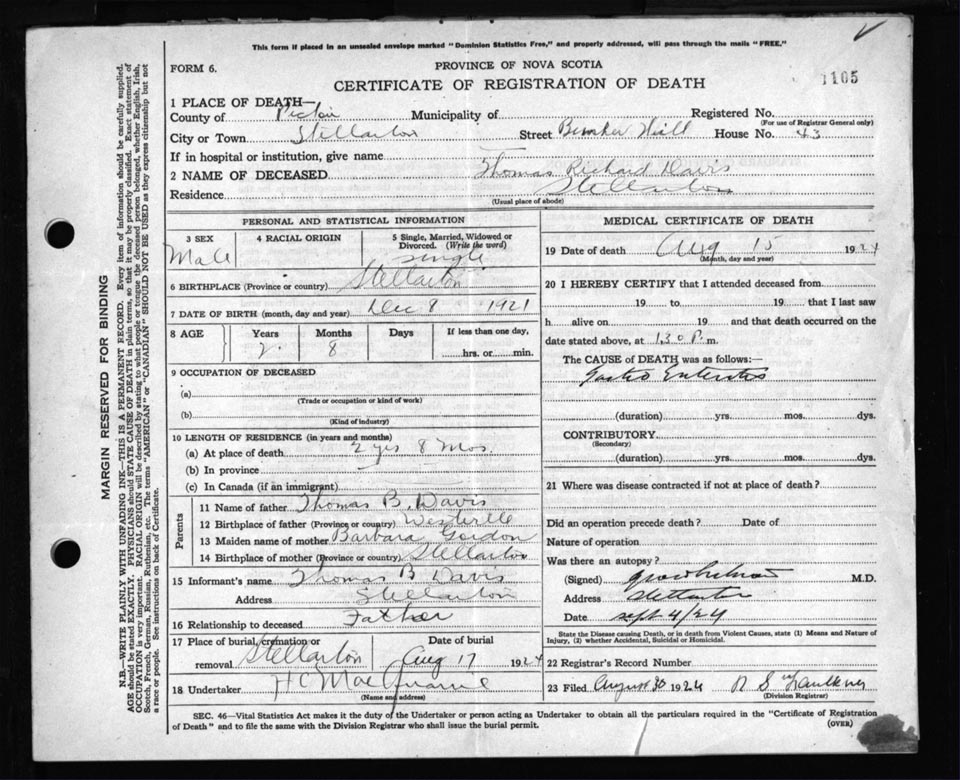 This form if placed in an unsealed envelope marked "Dominion Statistics Free," and properly addressed, will pass through the mails "FREE."
FORM 6.
PROVINCE OF NOVA SCOTIA
CERTIFICATE OF REGISTRATION OF DEATH
1105
1 PLACE OF DEATH—
County of Pictou Municipality of Registered No.
(For use of Registrar General only)
City or Town Stellarton Street Bunker Hill House No. 43
If in hospital or institution, give name
2 NAME OF DECEASED Thomas Richard Davis
Residence Stellarton
(Usual place of abode)
PERSONAL AND STATISTICAL INFORMATION
3 SEX 4 RACIAL ORIGIN 5 Single, Married, Widowed or Divorced. (Write the word)
Male single
6 BIRTHPLACE (Province or country) Stellarton
7 DATE OF BIRTH (month, day and year) Dec 8 1921
8 AGE Years Months Days If less than one day,
2 8 hrs. or min.
9 OCCUPATION OF DECEASED
(a)
(Trade or occupation or kind of work)
(b)
(Kind of industry)
10 LENGTH OF RESIDENCE (in years and months)
(a) At place of death 2 yrs 8 Mos.
(b) In province
(c) In Canada (if an immigrant)
Parents
11 Name of father Thomas B. Davis
12 Birthplace of father (Province or country) Westville
13 Maiden name of mother Barbara Gordon
14 Birthplace of mother (Province or country) Stellarton
15 Informant's name Thomas B Davis
Address Stellarton
16 Relationship to deceased Father
17 Place of burial, cremation or removal Stellarton Date of burial Aug 17 1924
18 Undertaker H C MacQuarrie
(Name and address)
MEDICAL CERTIFICATE OF DEATH
19 Date of death Aug 15 1924
(Month, day and year)
20 I HEREBY CERTIFY that I attended deceased from
19 to 19 that I last saw
h alive on 19 and that death occurred on the
date stated above, at 1.30 P. m.
The CAUSE of DEATH was as follows:—
Gastro Enteritis
(duration) yrs. mos. dys.
CONTRIBUTORY
(Secondary)
(duration) yrs. mos. dys.
21 Where was disease contracted if not at place of death?
Did an operation precede death? Date of
Nature of operation
Was there an autopsy?
(Signed) M.D.
Address Stellarton
Date Sept 4/24
State the Disease causing Death, or in death from Violent Causes, state (1) Means and Nature of
Injury, (2) whether Accidental, Suicidal or Homicidal.
22 Registrar's Record Number
23 Filed August 30 1924 R S Faulkner
(Division Registrar)
SEC. 46—Vital Statistics Act makes it the duty of the Undertaker or person acting as Undertaker to obtain all the particulars required in the "Certificate of Registration
of Death" and to file the same with the Division Registrar who shall issue the burial permit.
(OVER)
MARGIN RESERVED FOR BINDING
N.B.—WRITE PLAINLY WITH UNFADING INK—THIS IS A PERMANENT RECORD. Every item of information should be carefully supplied.
AGE should be stated EXACTLY. PHYSICIANS should STATE CAUSE OF DEATH in plain terms, so that it may be properly classified. Exact statement of
OCCUPATION is very important. RACIAL ORIGIN will be described by stating to what people or tongue the deceased person belonged, whether English, Irish,
Scotch, French, German, Russian, Ruthenian, etc. The terms "AMERICAN" or "CANADIAN" SHOULD NOT BE USED as they express citizenship but not
a race or people. See instructions on back of Certificate.